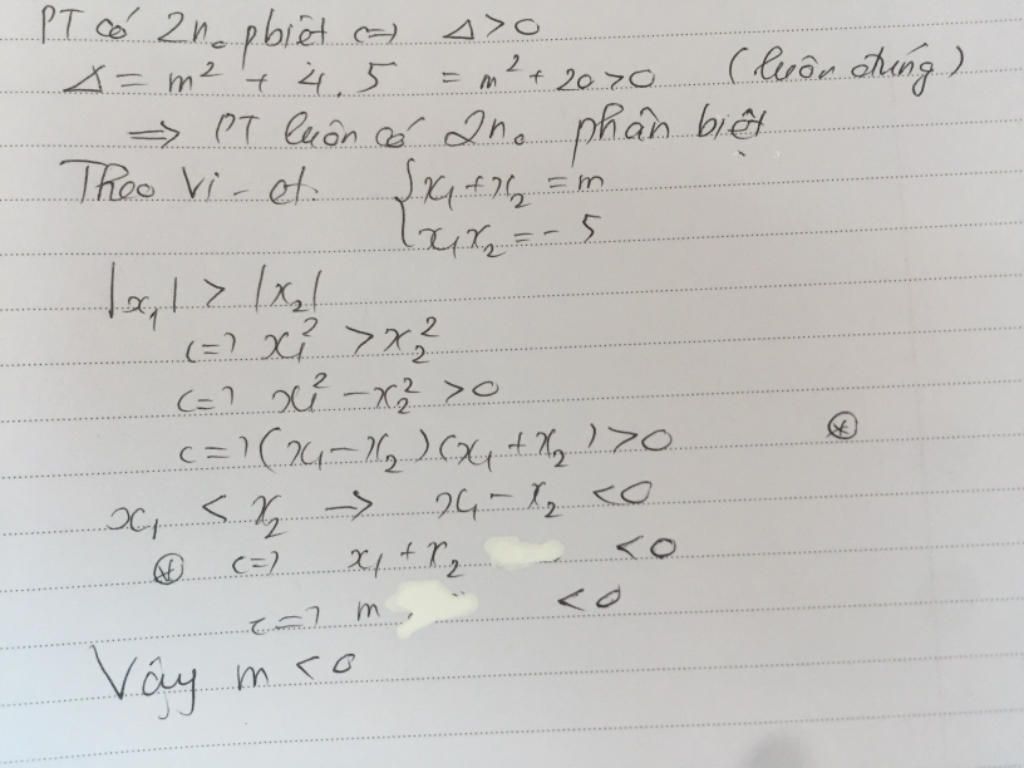 PT có 2n₀ pbiệt <=> Δ > 0
Δ = m² + 4.5 = m² + 20 > 0 (luôn đúng)
=> PT luôn có 2n₀ phân biệt
Theo Vi-et: { x₁ + x₂ = m
x₁x₂ = -5
|x₁| > |x₂|
<=> x₁² > x₂²
<=> x₁² - x₂² > 0
<=> (x₁ - x₂)(x₁ + x₂) > 0 (*)
x₁ < x₂ → x₁ - x₂ < 0
(*) <=> x₁ + x₂ < 0
<=> m < 0
Vậy m < 0